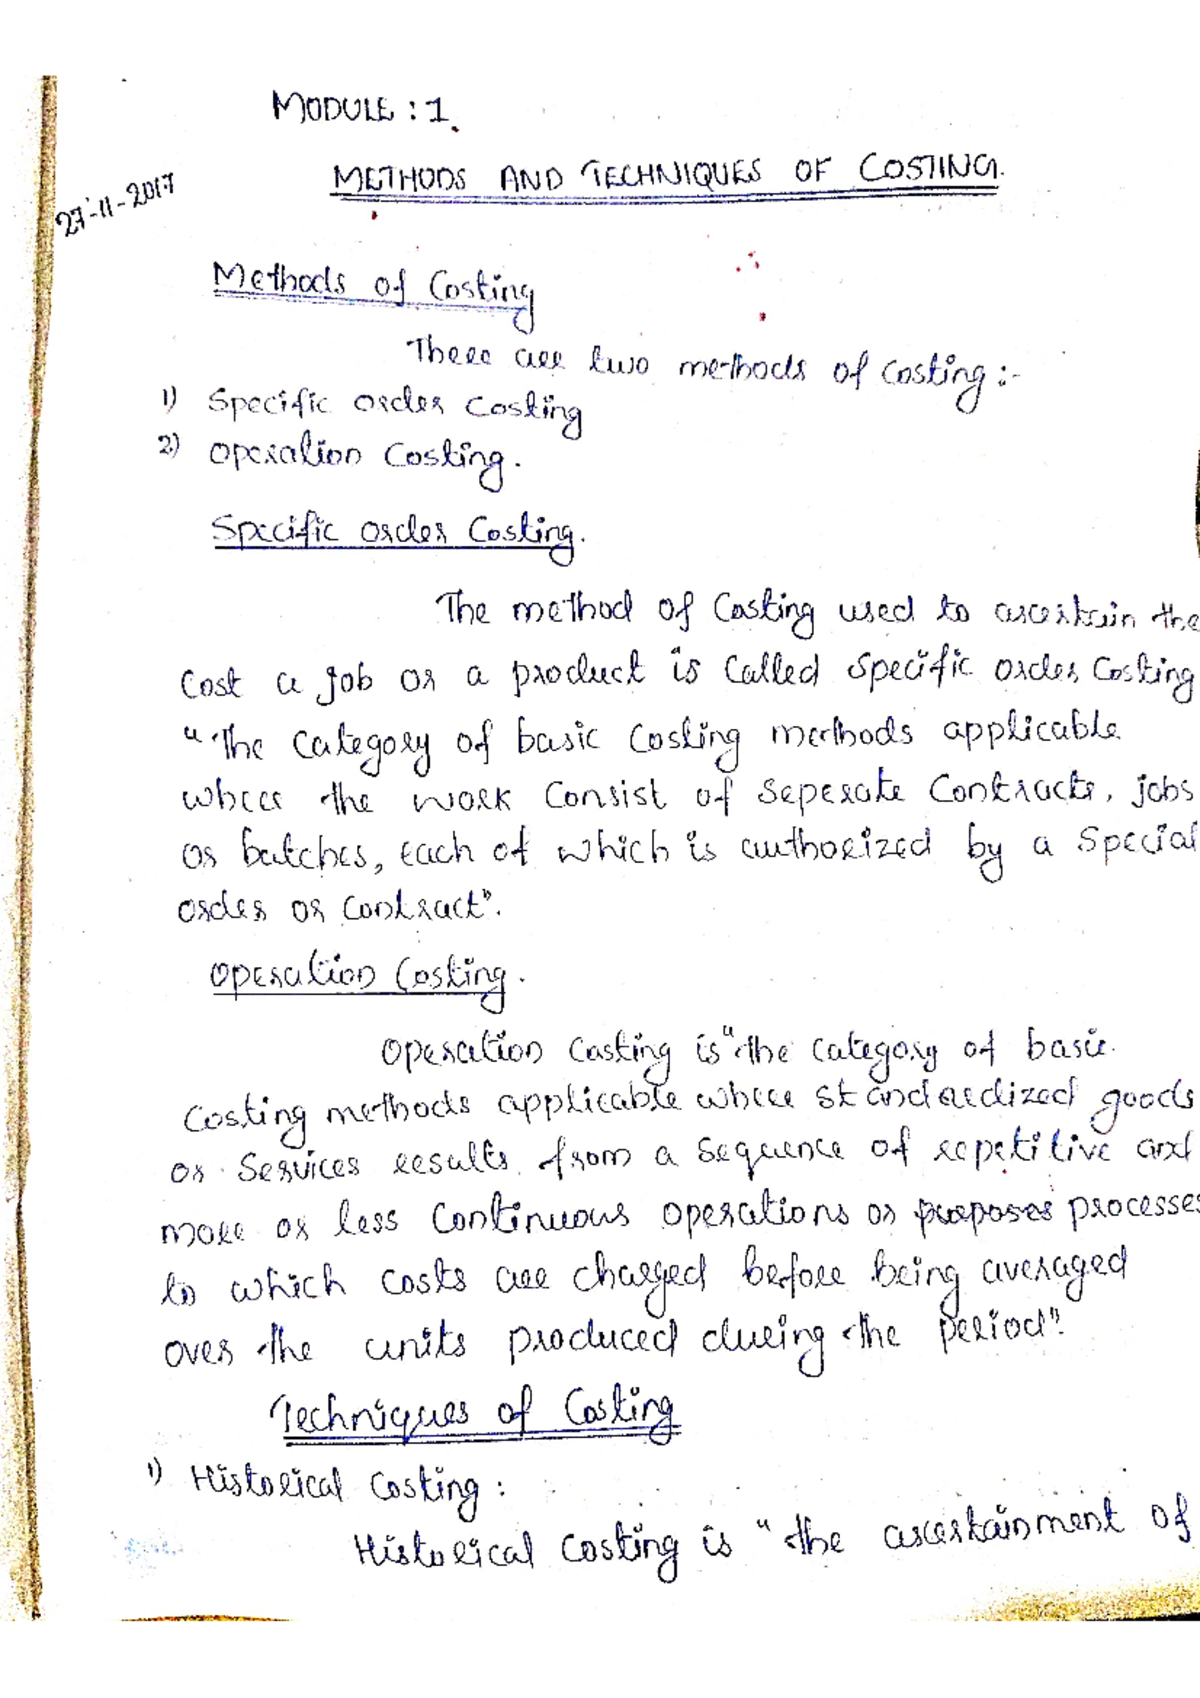 MODULE : 1.
METHODS AND TECHNIQUES OF COSTING.
27-11-2017
Methods of Costing
There are two methods of costing :-
1) Specific order costing
2) Operation Costing.
Specific order Costing.
The method of Costing used to ascertain the
Cost a job or a product is Called Specific order Costing
"The Category of basic Costing methods applicable
where the work Consist of Seperate Contracts, jobs
or batches, Each of which is authorized by a Special
order or Contract".
Operation Costing.
Operation Costing is "the Category of basic
Costing methods applicable where standardized goods
or Services results from a Sequence of repetitive and
more or less Continuous operations or purposes processes
to which costs are charged before being averaged
over the units produced during the period".
Techniques of Costing
1) Historical Costing :
Historical Costing is "the ascertainment of